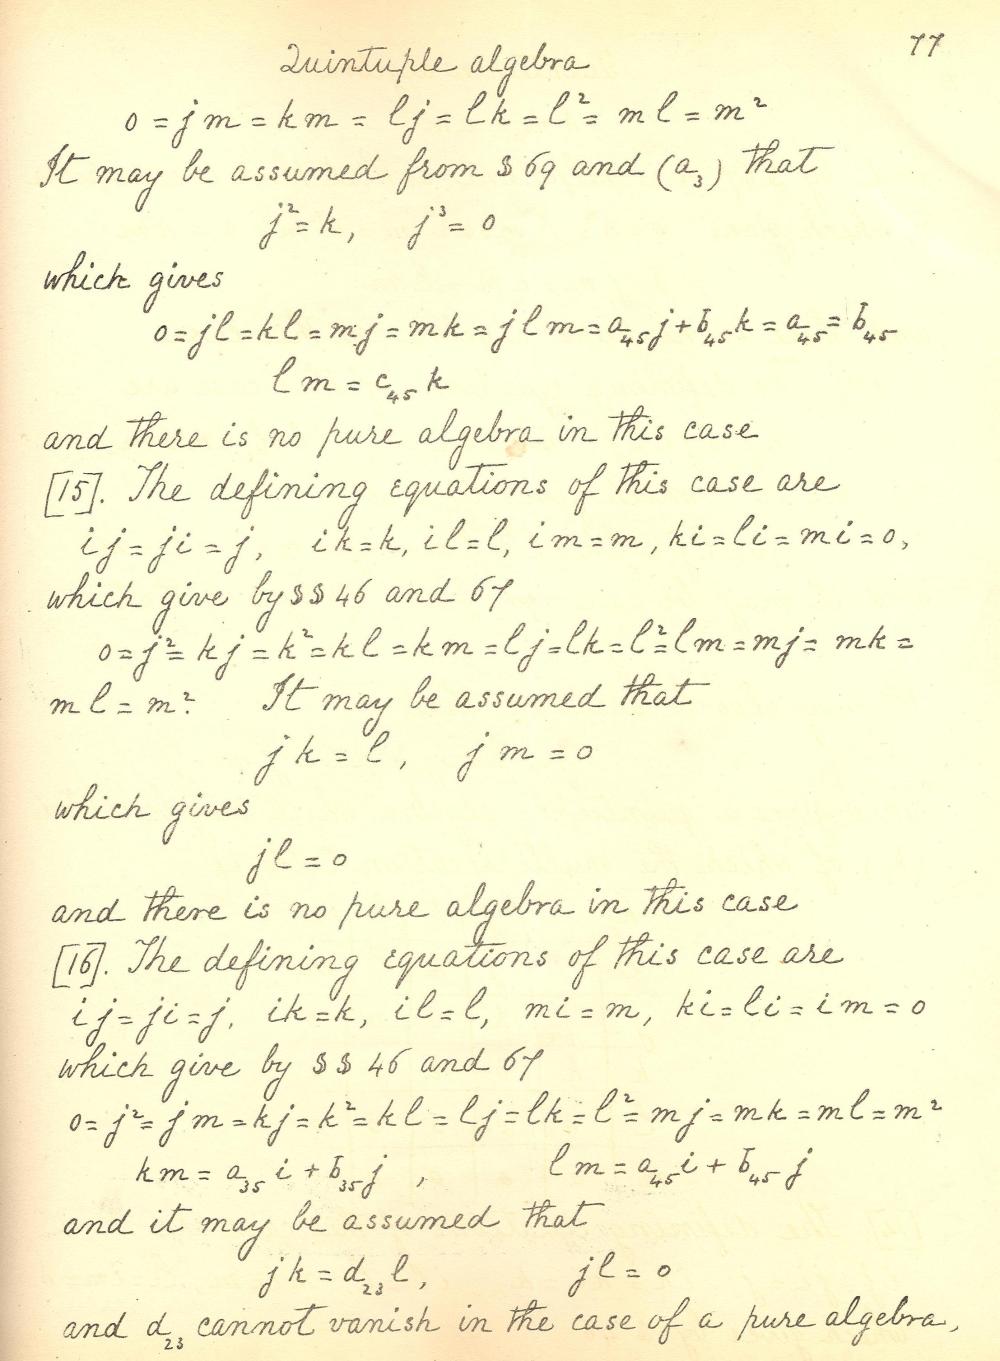 77
Quintuple algebra
0 = jm = km = lj = lk = l² = ml = m²
It may be assumed from $ 69 and (a₃) that
j² = k, j³ = 0
which gives
0 = jl = kl = mj = mk = jlm = a₄₅j + b₄₅k = a₄₅ = b₄₅
lm = c₄₅k
and there is no pure algebra in this case
[15]. The defining equations of this case are
ij = ji = j, ik = k, il = l, im = m, ki = li = mi = 0,
which give by $$ 46 and 67
0 = j² = kj = k² = kl = km = lj = lk = l² = lm = mj = mk =
ml = m². It may be assumed that
jk = l, jm = 0
which gives
jl = 0
and there is no pure algebra in this case
[16]. The defining equations of this case are
ij = ji = j, ik = k, il = l, mi = m, ki = li = im = 0
which give by $$ 46 and 67
0 = j² = jm = kj = k² = kl = lj = lk = l² = mj = mk = ml = m²
km = a₃₅i + b₃₅j, lm = a₄₅i + b₄₅j
and it may be assumed that
jk = d₂₃l, jl = 0
and d₂₃ cannot vanish in the case of a pure algebra,